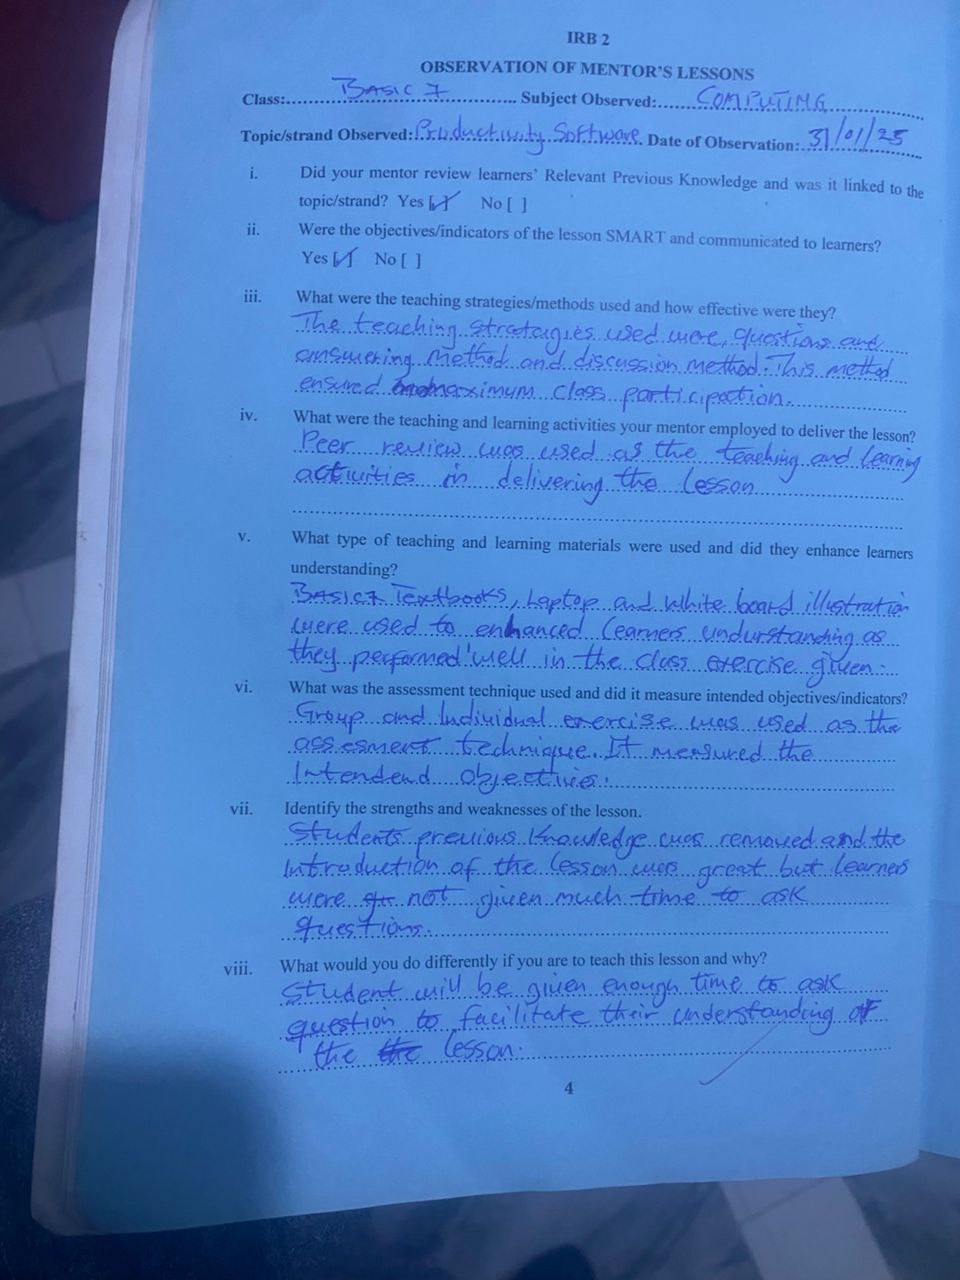 IRB 2
OBSERVATION OF MENTOR'S LESSONS
Class:..... BASIC 7 ..... Subject Observed:..... COMPUTING .....
Topic/strand Observed: Productivity Software. Date of Observation: 31/01/25
i. Did your mentor review learners' Relevant Previous Knowledge and was it linked to the
topic/strand? Yes [✓] No [ ]
ii. Were the objectives/indicators of the lesson SMART and communicated to learners?
Yes [✓] No [ ]
iii. What were the teaching strategies/methods used and how effective were they?
The teaching strategies used were, questions and
answering method and discussion method. This method
ensured maximum class participation.
iv. What were the teaching and learning activities your mentor employed to deliver the lesson?
Peer review was used as the teaching and learning
activities in delivering the lesson
v. What type of teaching and learning materials were used and did they enhance learners
understanding?
BASIC 7 Textbooks, Laptop and White board illustration
were used to enhanced learners understanding as
they performed well in the class exercise given.
vi. What was the assessment technique used and did it measure intended objectives/indicators?
Group and Individual exercise was used as the
assesment technique. It measured the
Intendend objectives.
vii. Identify the strengths and weaknesses of the lesson.
Students previous Knowledge was removed and the
Introduction of the lesson was great but learners
were not given much time to ask
questions.
viii. What would you do differently if you are to teach this lesson and why?
Student will be given enough time to ask
question to facilitate their understanding of
the lesson.
4